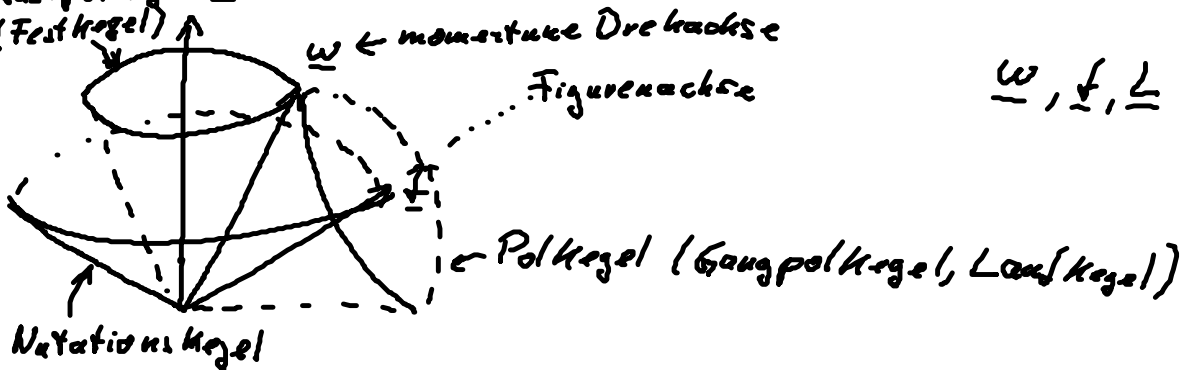 (Festkegel)
ω ← momentane Drehachse
Figurenachse
ω, f, L
f
Polkegel (Gangpolkegel, Laufkegel)
Nutationskegel